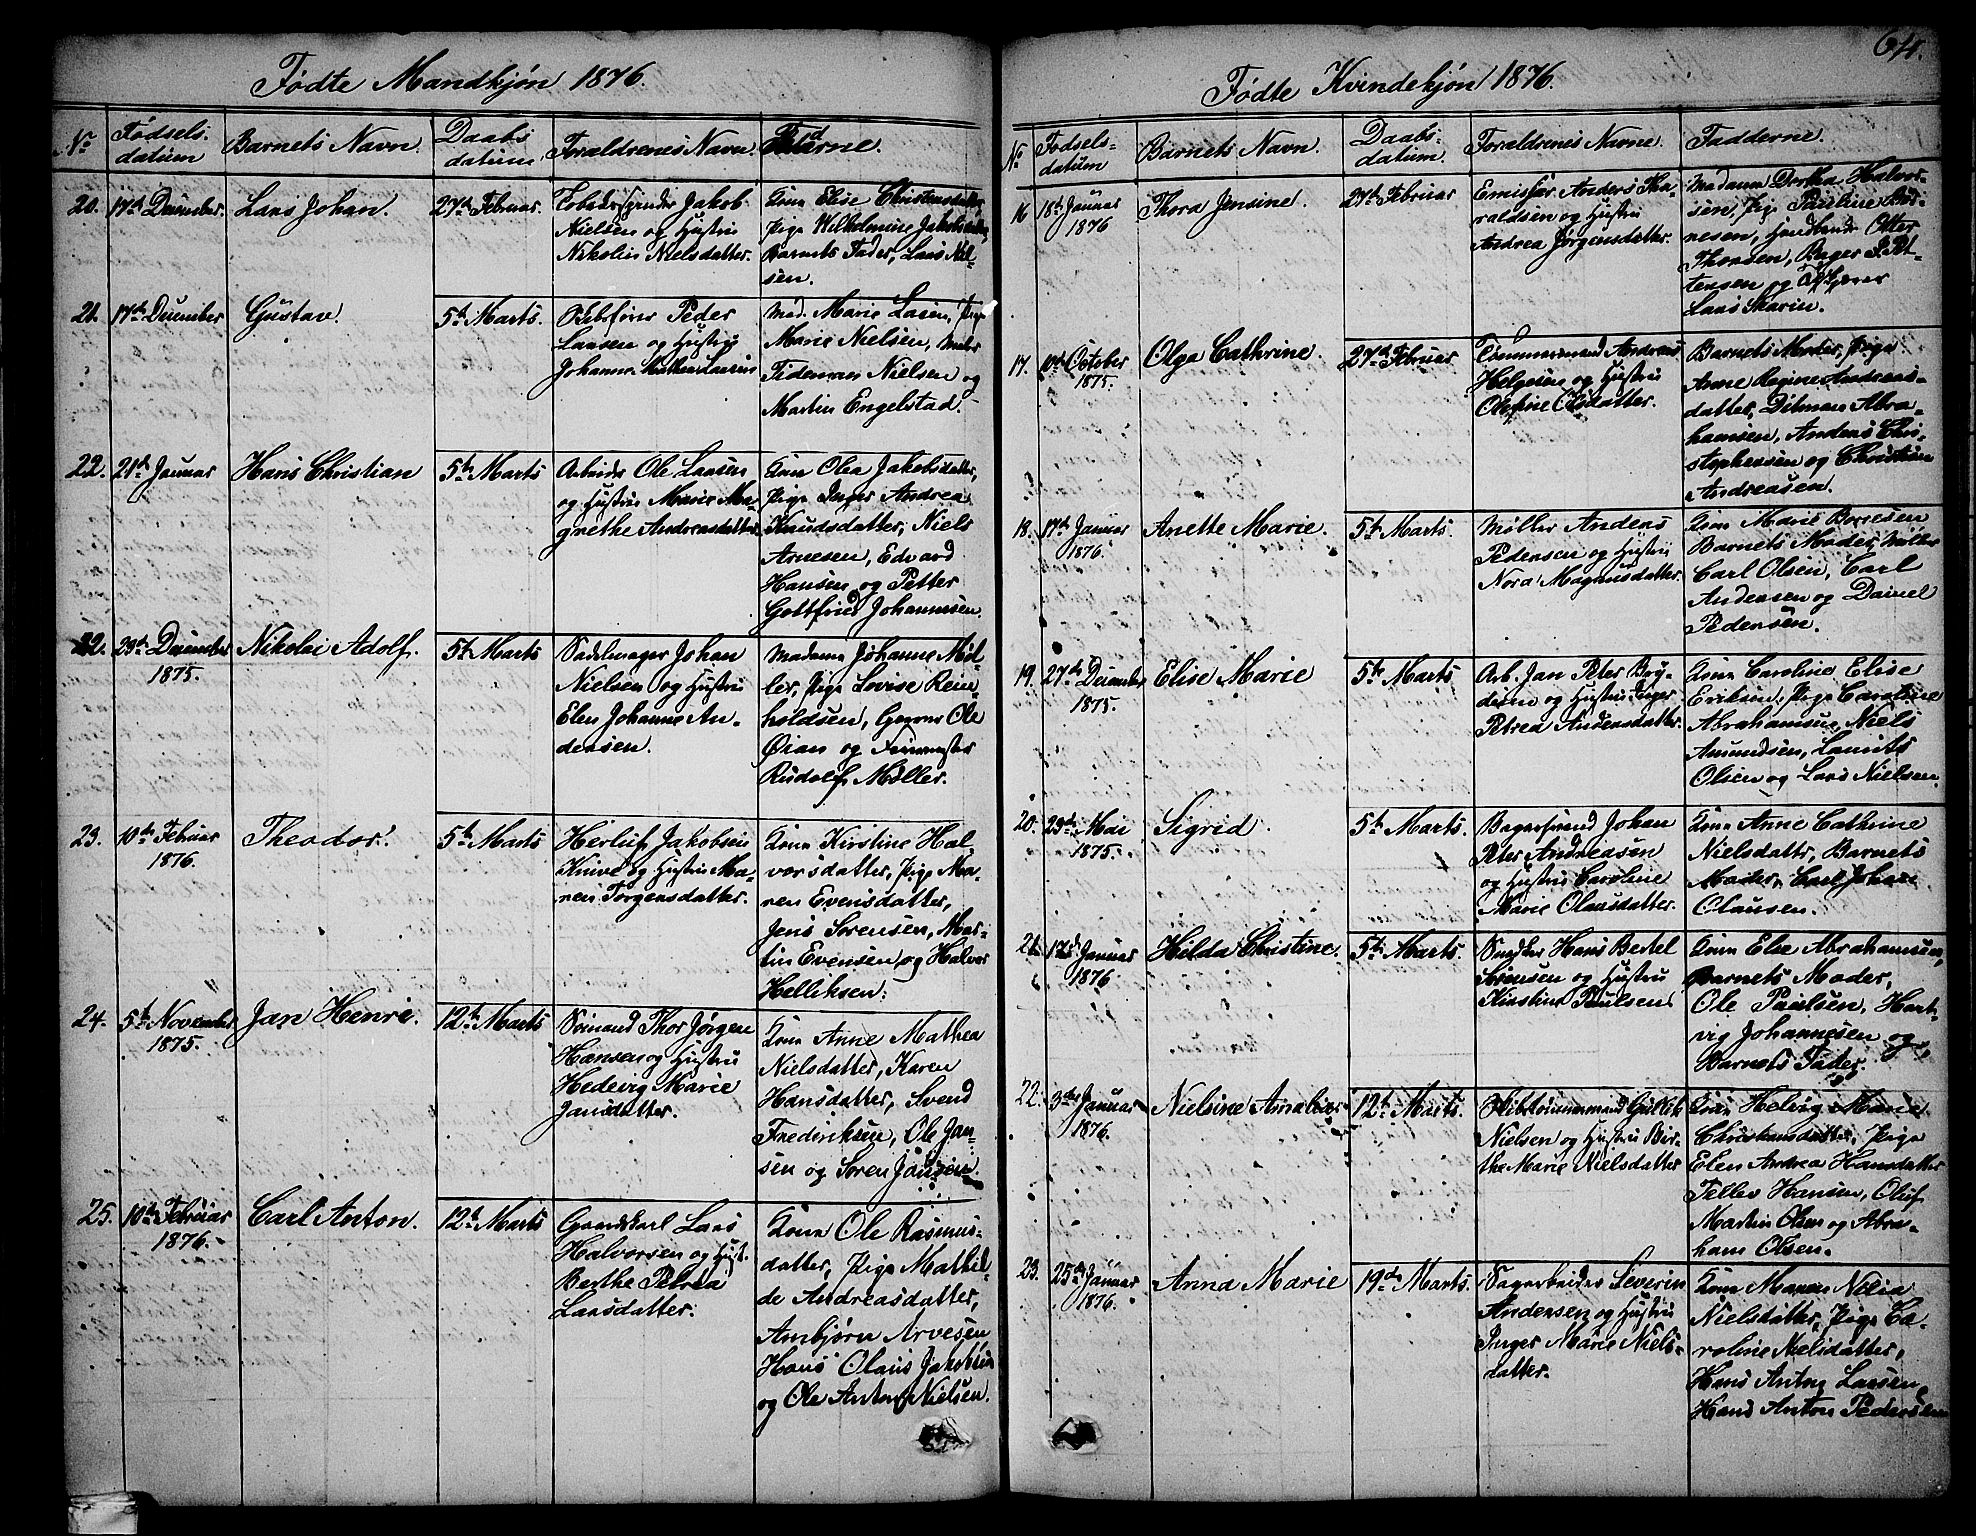 64.
Födte Mandkjøn 1876.
No
Födsels-
datum
Barnets Navn.
Daabs
datum.
Foraldrenes Navn.
Fadderne.
20.
17de December.
Lars Johan.
27de Februar.
Jakob
Nielsen og Hustru
Nikolin Nielsdatter.
Kone Elise Christensdatter,
Pige Wilhelmine Jakobsdatter,
Barnets Fader, Lars Niel-
sen.
21.
17de December
Gustav.
5te Marts.
Peder
Larsen og Hustru
Johanne
Mad. Marie Larsen, Pige
Marie Nielsen,
Tideman Nielsen og
Martin Engelstad.
22.
21de Januar
Hans Christian
5te Marts
Arbeider Ole Larsen
og Hustru Maren Mar-
grethe Andreasdatter
Kone Olea Jakobsdatter,
Pige Inger Andrea
Knudsdatter, Niels
Arnesen, Edvard
Hansen og Petter
Gottfried Johannesen.
22.
23de December
1875.
Nikolai Adolf.
5te Marts
Sadelmager Johan
Nielsen og Hustru
Elen Johanne An-
dersen.
Madame Johanne Möl-
ler, Pige Lovise Rein-
holdsen, Ole
Øian og
Rudolf Møller.
23.
10de Februar
1876.
Theodor.
5te Marts
Herluf Jakobsen
Knive og Hustru Ma-
ren Torgersdatter.
Kone Kirstine Hal-
vorsdatter, Pige Ma-
ren Evensdatter,
Jens Sørensen, Mar-
tin Evensen og Halvor
Helliksen.
24.
5te November
1875.
Jan Henri.
12te Marts
Sømand Thor Jørgen
Hansen og Hustru
Hedevig Marie
Jansdatter.
Kone Anne Mathea
Nielsdatter, Karen
Hansdatter, Svend
Frederiksen, Ole Jan-
sen og Søren Jansen.
25.
10de Februar
1876.
Carl Anton.
12te Marts
Gaardskarl Lars
Halvorsen og Hust.
Berthe Petrea
Larsdatter.
Kone Ole Rasmus-
datter, Pige Mathil-
de Andreasdatter,
Arnbjørn Arvesen
Hans Olaus Jakobsen
og Ole Anton Nielsen.
Födte Kvindekjøn 1876.
No
Födsels-
datum
Barnets Navn.
Daabs-
datum.
Foraldrenes Navne.
Fadderne.
16
18de Januar
1876
Thora Jensine.
27de Februar
Anders Tha-
raldsen og Hustru
Andrea Jørgensdatter.
Madame Dorthea Halvor-
sen, Pige Pauline
Otter
Thorsen, Bager
og
Lars Skarin.
17.
October
1875.
Olga Cathrine.
27de Februar
Tømmermand Andreas
Helgesen og Hustru
Olsdatter.
Barnets Moder, Pige
Anne Regine Andreas-
datter, Ditman Abra-
hamsen, Anders Chri-
stophersen og Christian
Andreasen.
18.
17de Januar
1876.
Anette Marie.
5te Marts.
Møller Anders
Pedersen og Hustru
Nora Magnusdatter.
Kone Marie
Barnets Moder, Møller
Carl Olsen, Carl
Andersen og Daniel
Pedersen.
19.
27de December
1875.
Elise Marie
5te Marts
Arb. Jan Peter
og Hustru Inger
Petrea Andersdatter.
Kone Caroline Elise
Eriksen, Pige Caroline
Abrahamsen, Niels
Amundsen, Laurits
Olsen og Lars Nielsen.
20.
23de Mai
1875.
Sigrid.
5te Marts.
Bagersvend Johan
Peter Andreasen
og Hustru Caroline
Marie Olausdatter.
Kone Anne Cathrine
Nielsdatter, Barnets
Moder, Carl Johan
Olausen.
21.
Januar
1876
Hilda Christine.
5te Marts.
Hans Bertel
Sørensen og Hustru
Kirstine Paulsen
Kone Elee Abrahamsen,
Barnets Moder,
Ole Paulsen, Hart-
vig Johannesen og
Barnets Fader.
22.
3de Januar
1876.
Nielsine Amalie
12te Marts.
Gullik
Nielsen og Hustru Bir-
the Marie Nielsdatter
Kone Helvig Marie
Christensdatter, Pige
Elen Andrea Hansdatter
Tellev Hansen, Oluf
Martin Olsen og Abra-
ham Olsen.
23.
25de Januar
1876.
Anna Marie
19de Marts.
Sagarbeider Severin
Andersen og Hustru
Inger Marie Niels-
datter.
Kone Maren
Nielsdatter, Pige Ca-
roline Nielsdatter,
Hans Anton Larsen
Hans Anton Pedersen